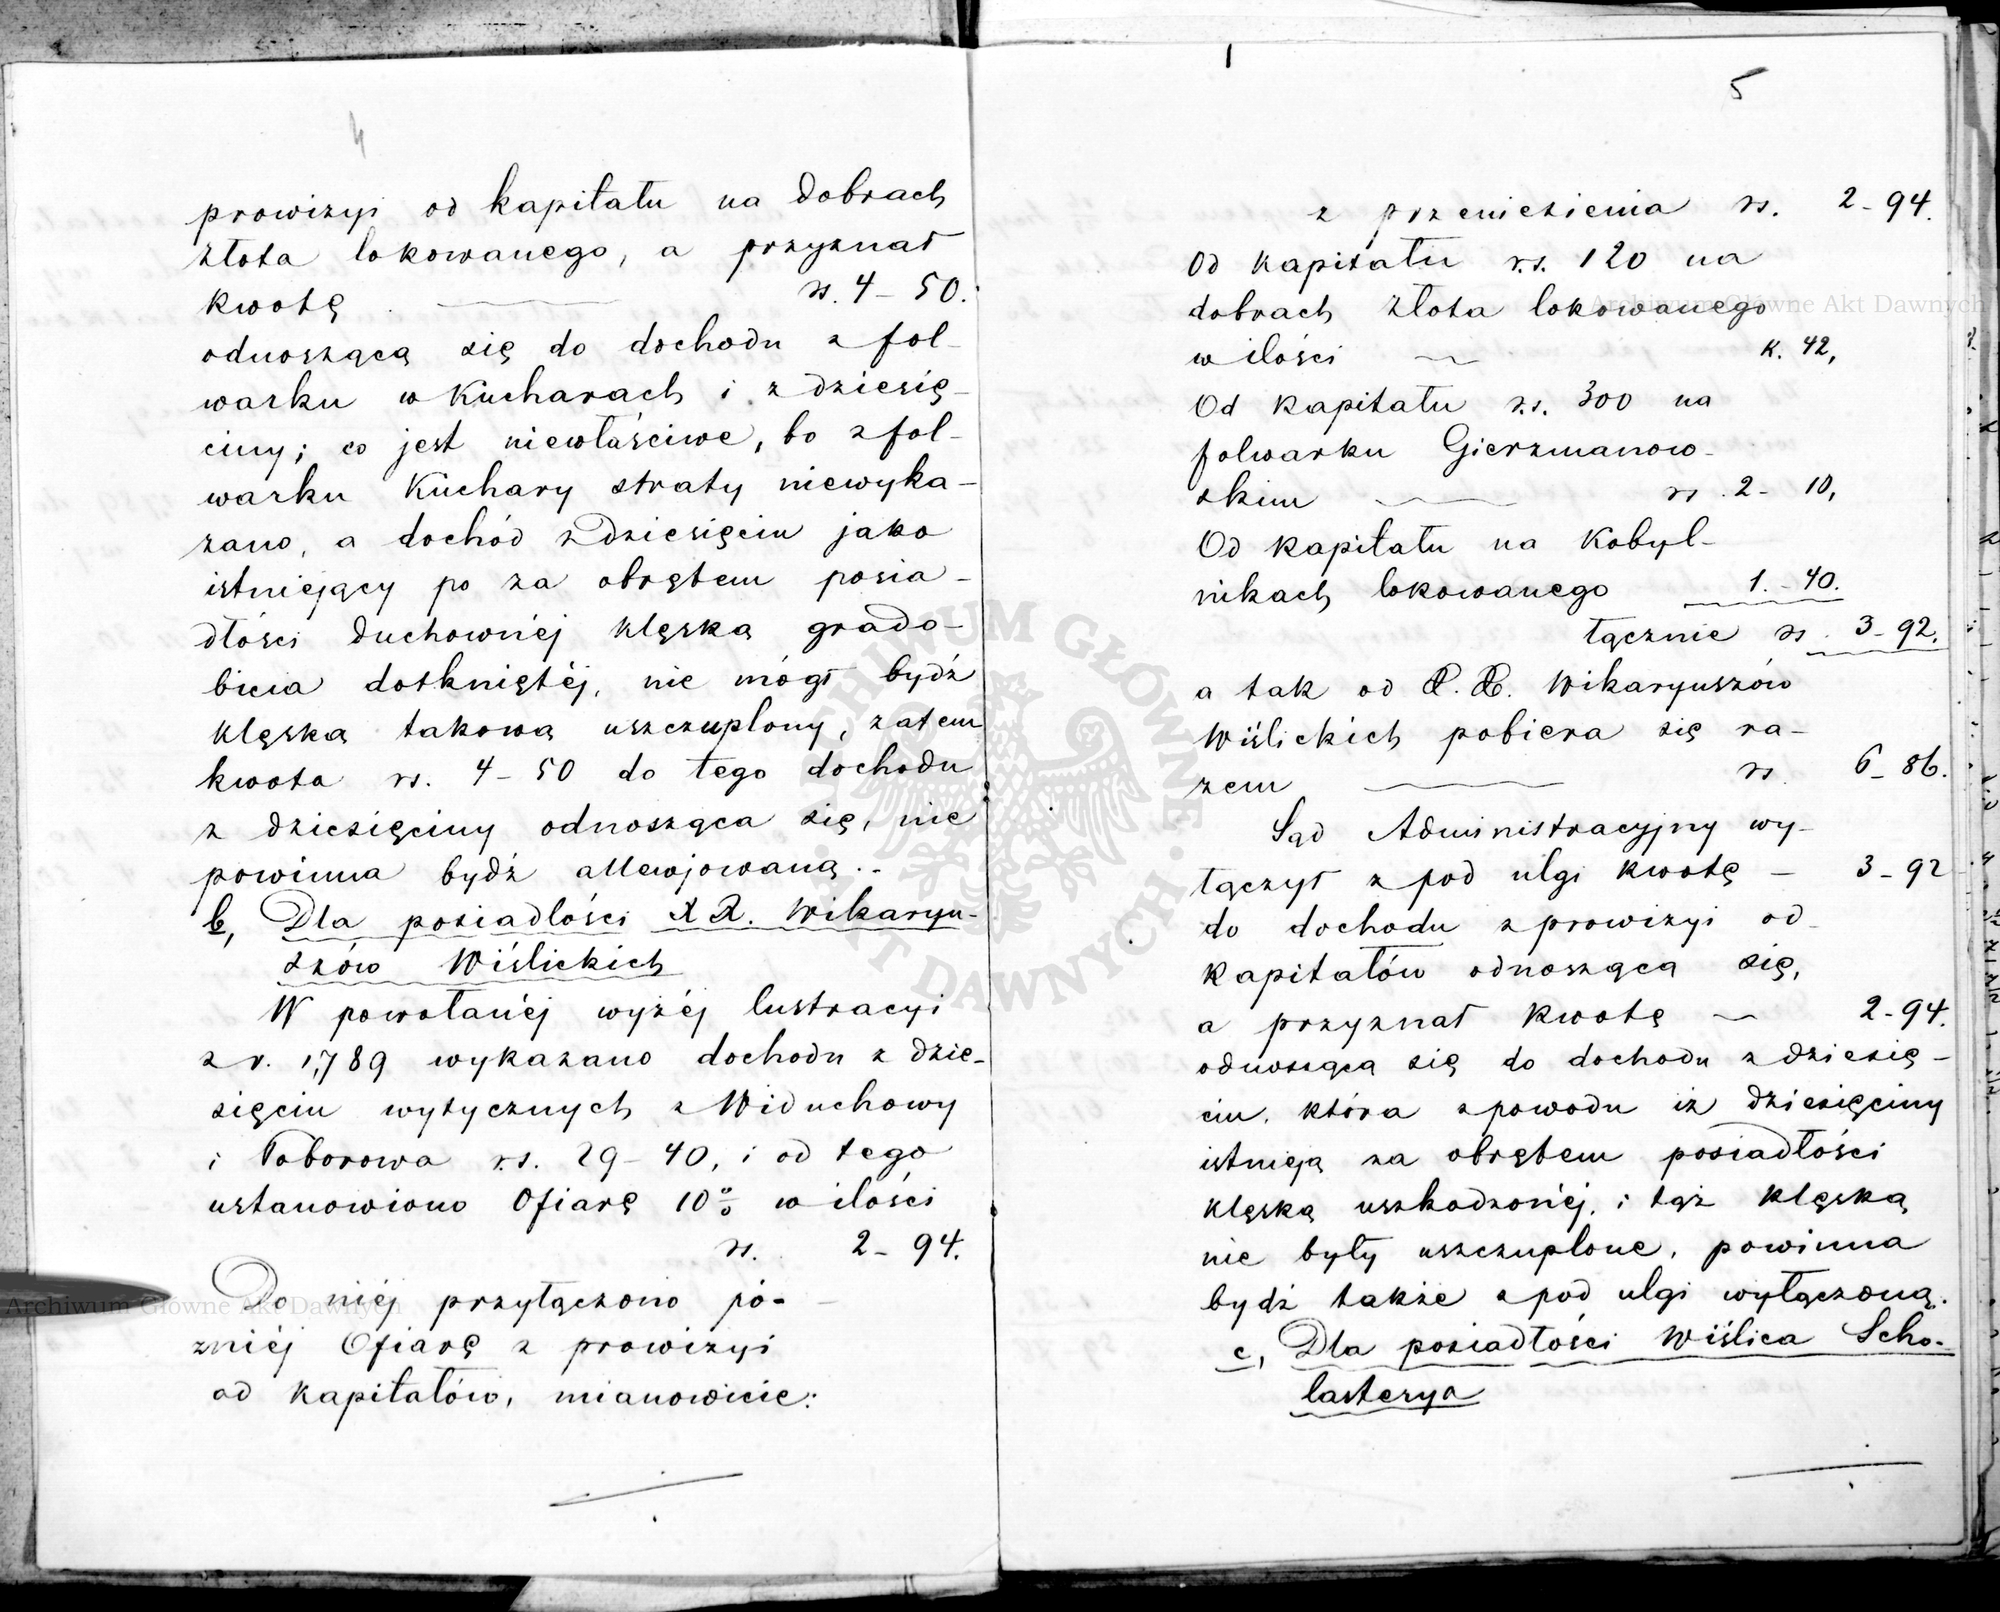 4
prowizyi od kapitału na dobrach
Złota lokowanego, a przyznał
kwotę rs. 4 – 50.
odnoszącą się do dochodu z fol-
warku w Kucharach i z dziesię-
ciny; co jest niewłaściwe, bo z fol-
warku Kuchary straty niewyka-
zano, a dochód z dziesięcin jako
istniejący po za obrębem posia-
dłości duchownéj klęską grado-
bicia dotkniętéj, nie mógł bydź
klęską takową uszczuplony, zatem
kwota rs. 4 – 50 do tego dochodu
z dziesięciny odnosząca się, nie
powinna bydź allewjowaną.
b, Dla posiadłości XX. Wikaryu-
szów Wiślickich
W powołanéj wyżéj lustracyi
z r. 1789 wykazano dochodu z dzie-
sięcin wytycznych z Widuchowy
i Poborowa r.s. 29 – 40, i od tego
ustanowiono Ofiarę 10% w ilości
rs. 2 – 94.
Do niéj przyłączono pó-
zniéj Ofiarę z prowizyi
od kapitałów, mianowicie:
5
z przeniesienia rs. 2 – 94.
Od kapitału r.s. 120 na
dobrach Złota lokowanego
w ilości k. 42,
Od kapitału r.s. 300 na
folwarku Gierzmanow-
skim rs. 2 – 10,
Od kapitału na Kobyl-
nikach lokowanego 1. – 40.
łącznie rs. 3 – 92.
a tak od X.X. Wikaryuszów
Wiślickich pobiera się ra-
zem rs. 6 – 86.
Sąd Administracyjny wy-
łączył z pod ulgi kwotę – 3 – 92
do dochodu z prowizyi od
kapitałów odnoszącą się,
a przyznał kwotę – 2 – 94.
odnoszącą się do dochodu z dziesię-
cin, która z powodu iż dziesięciny
istnieją za obrębem posiadłości
klęską uszkodzonéj, i tąż klęską
nie były uszczuplone, powinna
bydź także z pod ulgi wyłączoną.
c, Dla posiadłości Wiślica Scho-
lasterya
Archiwum Główne Akt Dawnych
Archiwum Główne Akt Dawnych
ARCHIWUM GŁÓWNE
AKT DAWNYCH